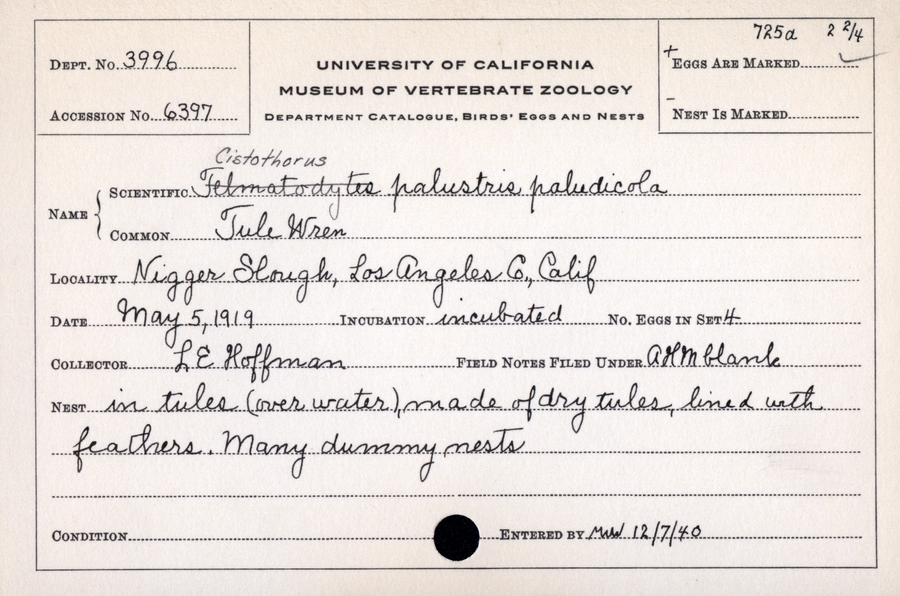 725a 2 2/4
DEPT. No. 3996
+ EGGS ARE MARKED
UNIVERSITY OF CALIFORNIA
MUSEUM OF VERTEBRATE ZOOLOGY
DEPARTMENT CATALOGUE, BIRDS' EGGS AND NESTS
ACCESSION No. 6397
- NEST IS MARKED
Cistothorus
NAME { SCIENTIFIC Telmatodytes palustris paludicola
COMMON Tule Wren
LOCALITY Nigger Slough, Los Angeles Co., Calif
DATE May 5, 1919 INCUBATION incubated No. EGGS IN SET 4
COLLECTOR L E Hoffman FIELD NOTES FILED UNDER AHM blank
NEST in tules (over water), made of dry tules, lined with
feathers. Many dummy nests
CONDITION ENTERED BY 12/7/40